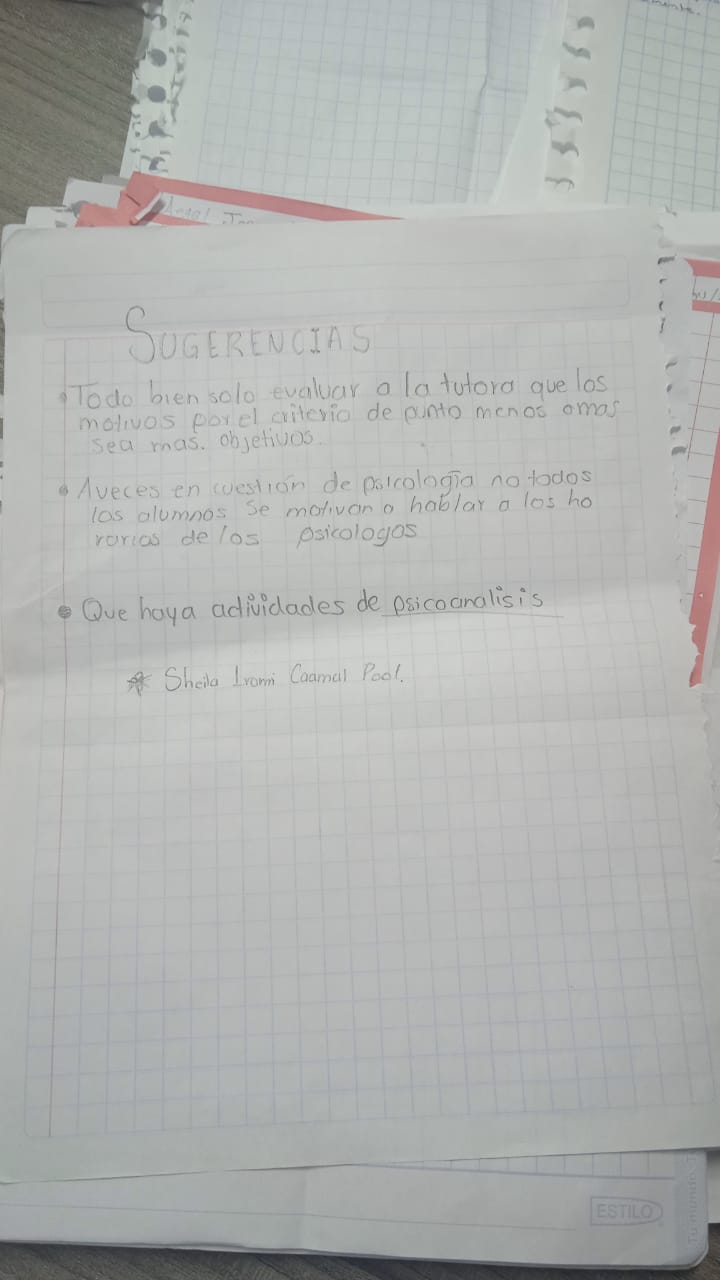 Angel
SUGERENCIAS
• Todo bien solo evaluar a la tutora que los
motivos por el criterio de punto menos o mas
sea mas. objetivos.
• Aveces en cuestión de psicologia no todos
los alumnos se motivan a hablar a los ho
rarios de los psicologos
• Que haya actividades de psicoanalisis
* Sheila Ivonni Caamal Pool.
ESTILO
Tu mundo